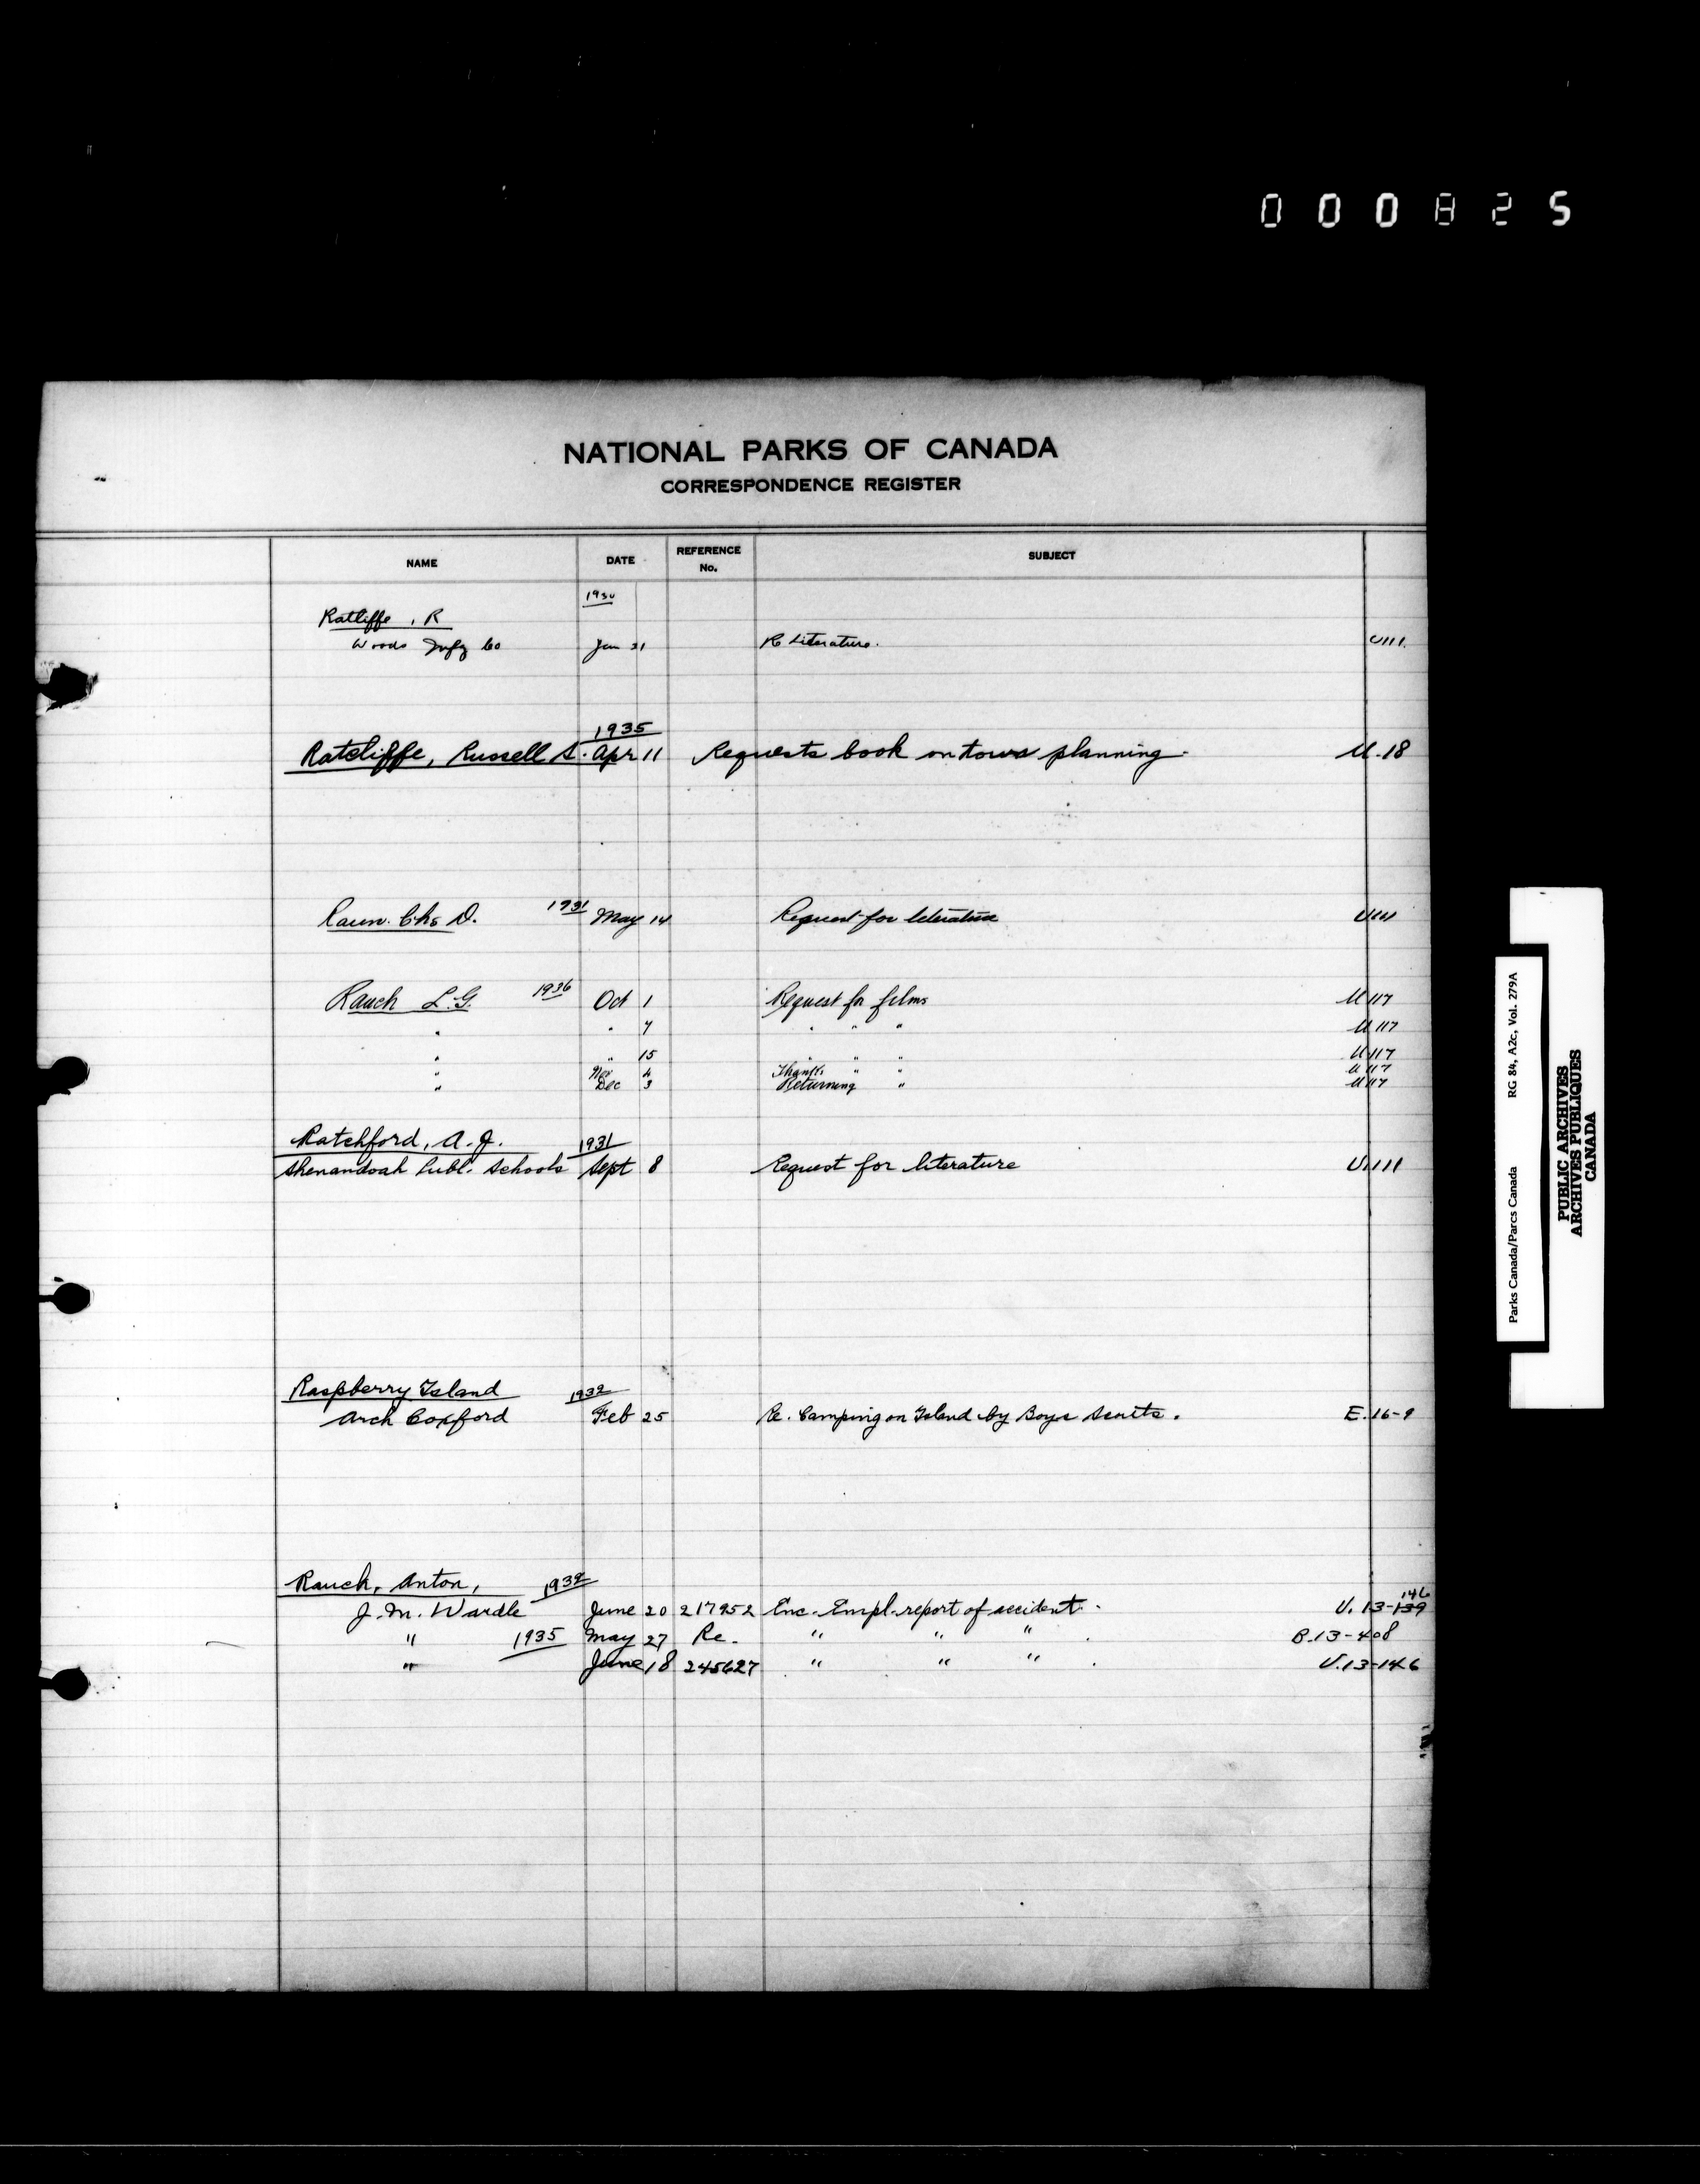 000825
NATIONAL PARKS OF CANADA
CORRESPONDENCE REGISTER
NAME DATE REFERENCE No. SUBJECT
1930
Ratliffe, R
Woods Mfg Co Jan 21 Re Literature. U111.
1935
Ratcliffe, Russell S. Apr 11 Requests book on town planning. U.18
Raun. Chs D. 1931 May 14 Request for literature U111
Rauch L.G. 1936 Oct 1 Request for films U117
" " 7 " " " U117
" " 15 " " " U117
" Nov 4 Thanks " " U117
" Dec 3 Returning " U117
Ratchford, A.J. 1931
Shenandoah Publ. Schools Sept 8 Request for literature U.111
Raspberry Island 1932
Arch Coxford Feb 25 Re. Camping on Island by Boys Scouts. E.16-9
Rauch, Anton, 1932 146
J.M. Wardle June 20 217952 Enc. Empl. report of accident. U.13-139
" 1935 May 27 Re. " " " . B.13-408
" June 18 245627 " " " . U.13-146
Parks Canada/Parcs Canada RG 84, A2c, Vol. 279A
PUBLIC ARCHIVES
ARCHIVES PUBLIQUES
CANADA